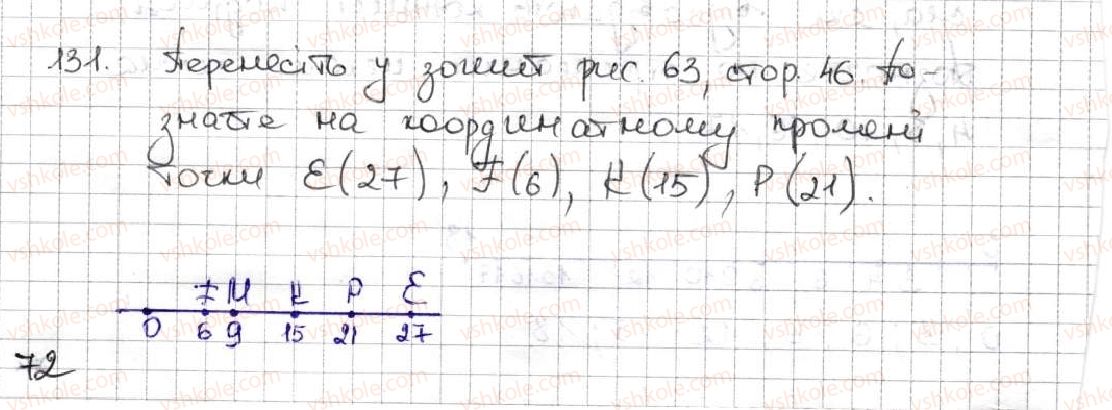 131. Перенесіть у зошит рис. 63, стор. 46. По-
значте на координатному промені
точки E(27), F(6), K(15), P(21).
F M K P E
0 6 9 15 21 27
72